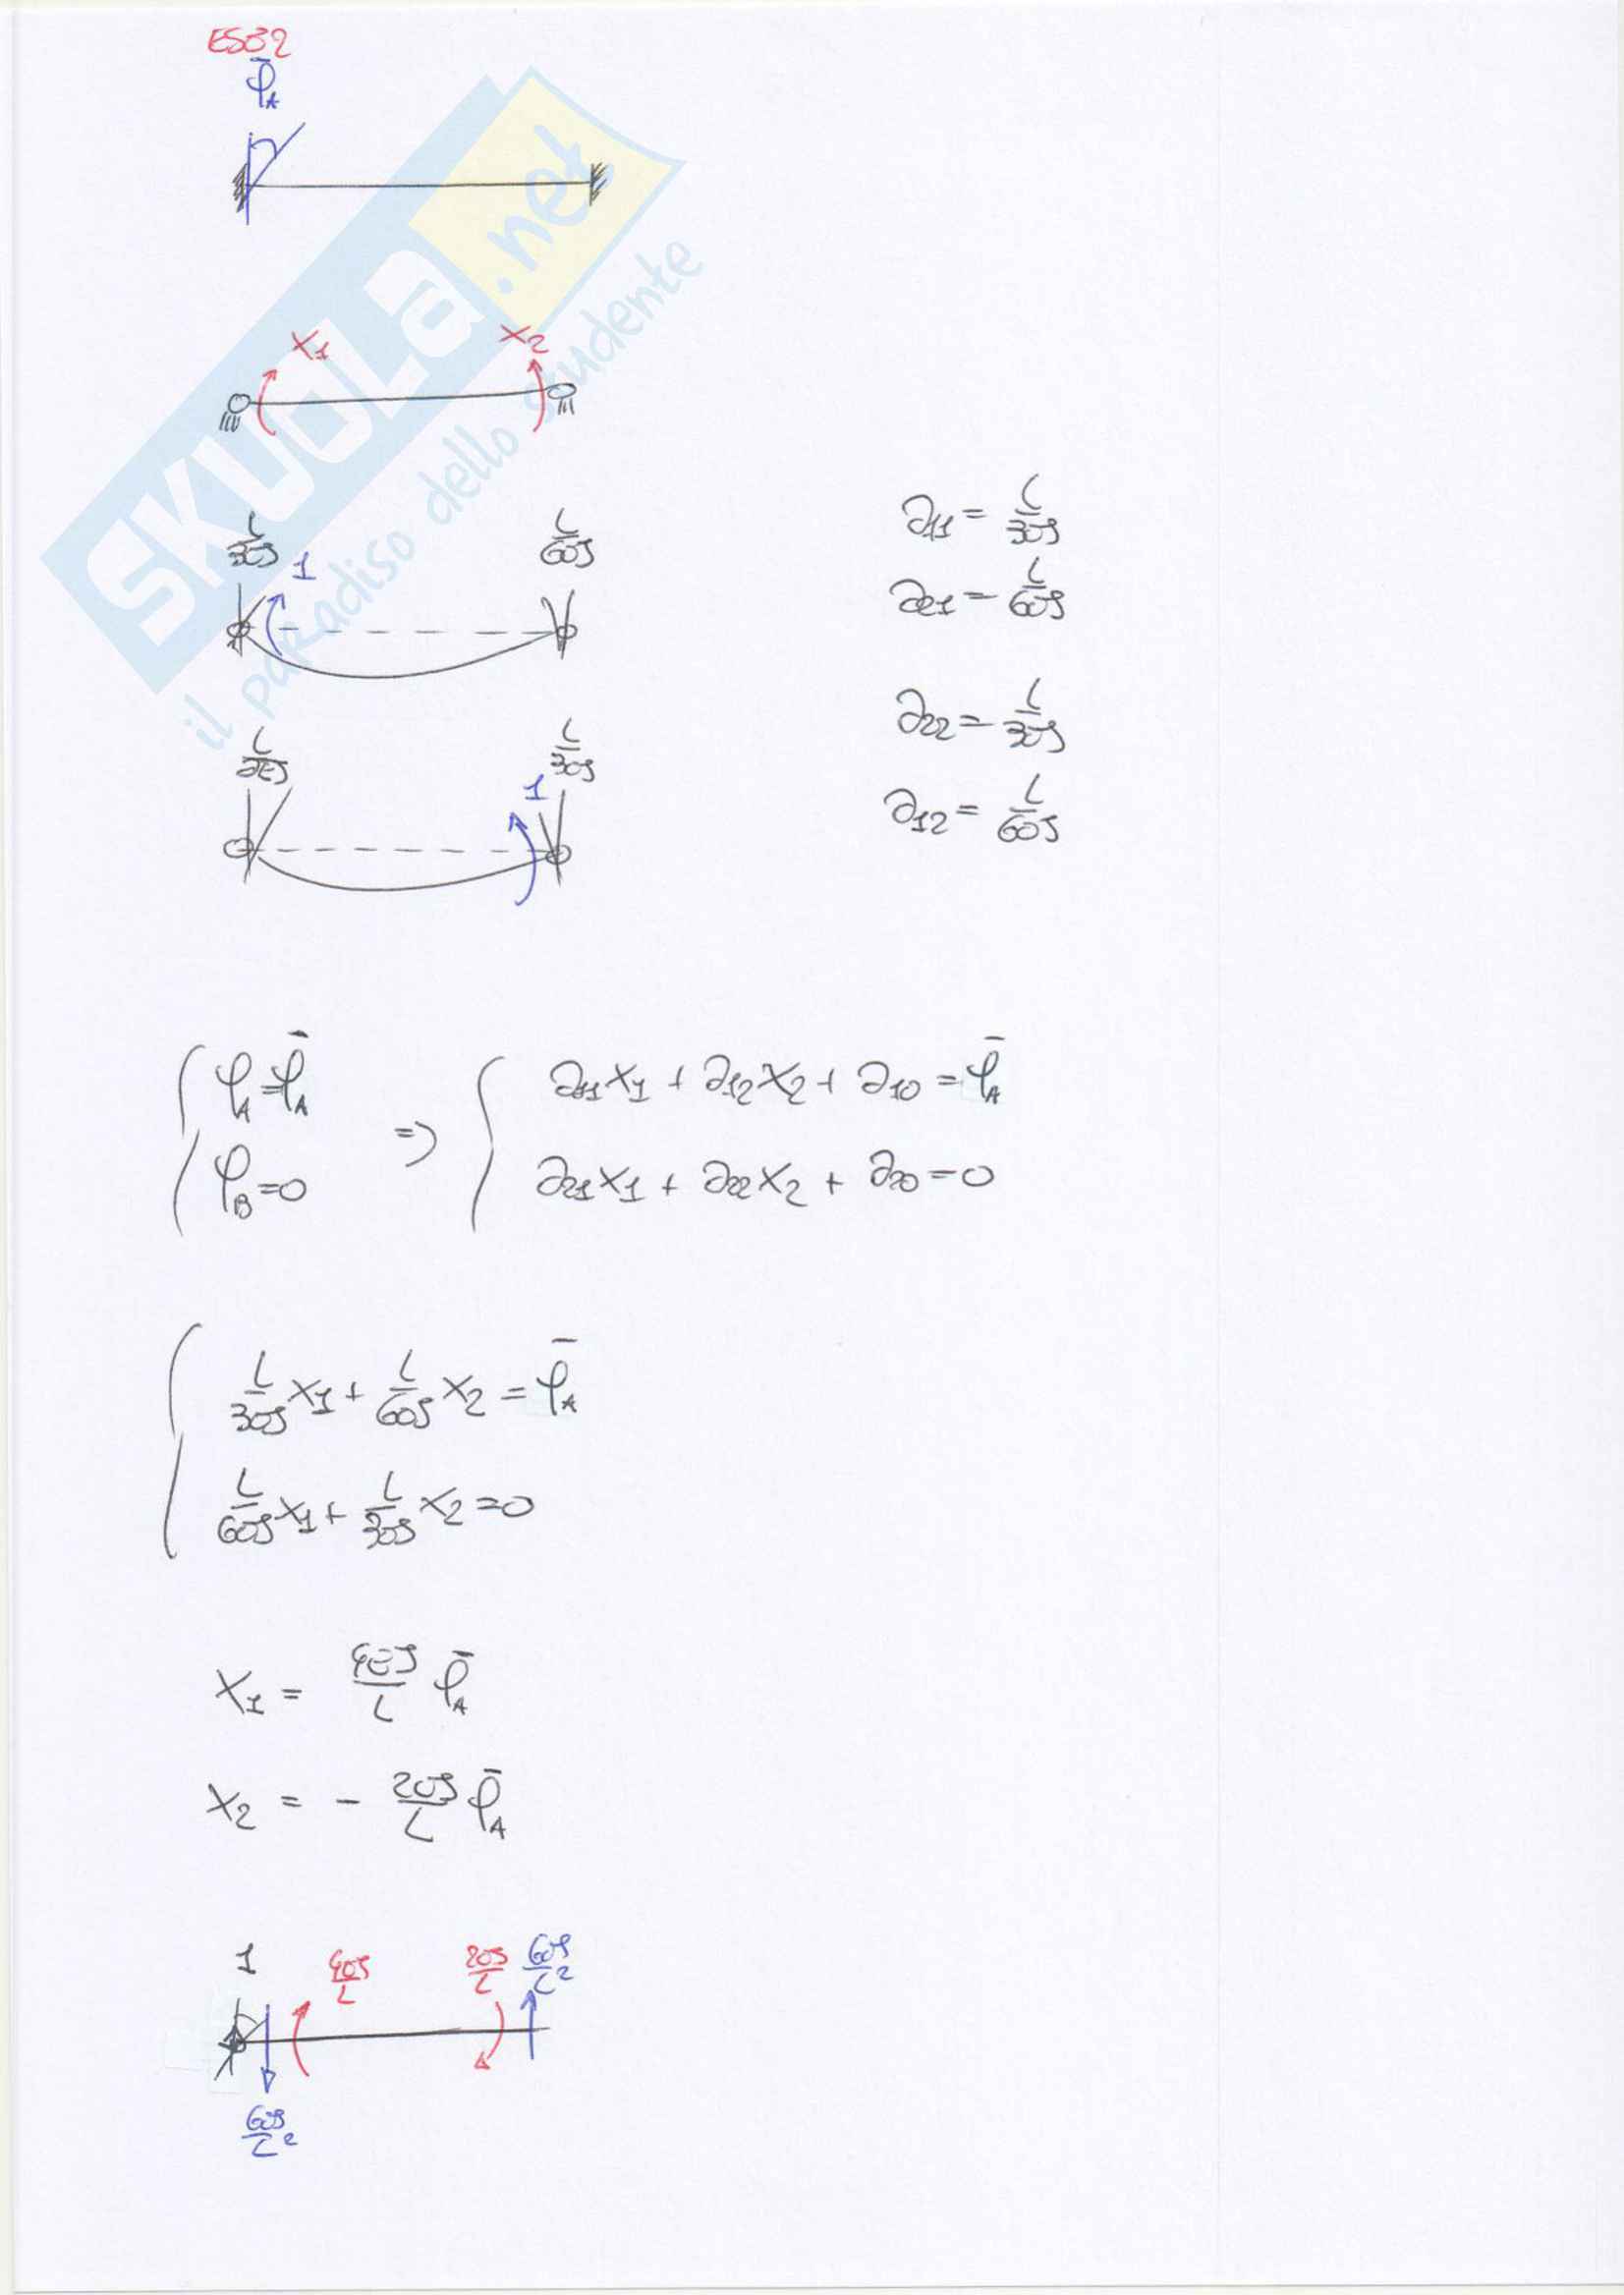 ES32
φ̄_A
SKUOLA.net
il paradiso dello studente
X1 X2
L/3EJ 1 L/6EJ
∂11 = L/3EJ
∂21 = L/6EJ
L/3EJ
1
∂22 = L/3EJ
∂12 = L/6EJ
φ_A = φ̄_A => ∂11X1 + ∂12X2 + ∂10 = φ̄_A
φ_B = 0 ∂21X1 + ∂22X2 + ∂20 = 0
L/3EJ X1 + L/6EJ X2 = φ̄_A
L/6EJ X1 + L/3EJ X2 = 0
X1 = 4EJ/L φ̄_A
X2 = - 2EJ/L φ̄_A
1 4EJ/L 2EJ/L 6EJ/L²
6EJ/L²